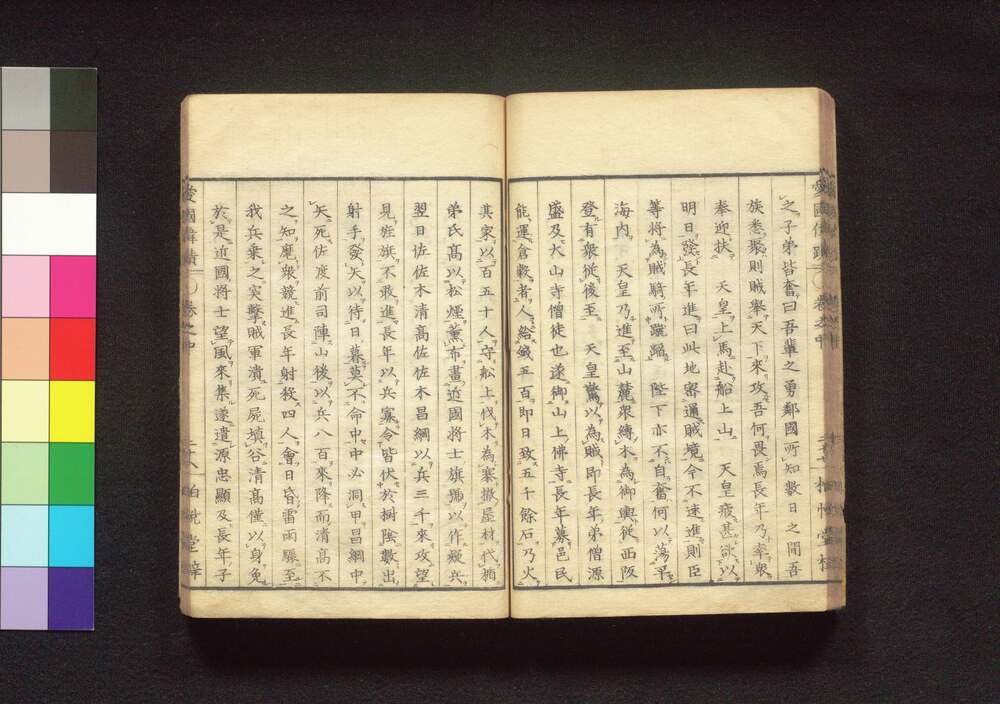 之子弟皆奮曰吾輩之勇鄰國所知數日之間吾
族悉聚則賊舉天下來攻吾何畏焉長年乃率衆
奉迎扶　天皇上馬赴船上山　天皇疲甚欲以
明日發長年進曰此地密邇賊境今不速進則臣
等將為賊騎所蹴蹋　陛下亦不自奮何以蕩平
海內　天皇乃進至山麓衆縛木為御輿從西阪
登有衆從後至　天皇驚以為賊即長年弟僧源
盛及大山寺僧徒也遂御山上佛寺長年募邑民
能運倉穀者人給錢五百即日致五千餘石乃火
其家以百五十人守船上伐木為寨撤屋材代楯
弟氏高以松煙薰布畫近國將士旗號以作疑兵
翌日佐佐木清高佐佐木昌綱以兵三千來攻望
見旌旗不敢進長年以兵寡令皆伏於樹陰數出
射手發矢以待日暮莫不命中中必洞甲昌綱中
矢死佐度前司陣山後以兵八百來降而清高不
之知麾衆競進長年射殺四人會日昏雷雨驟至
我兵乘之突擊賊軍潰死屍填谷清高僅以身免
於是近國將士望風來集遂遣源忠顯及長年子
愛國偉蹟　卷之中